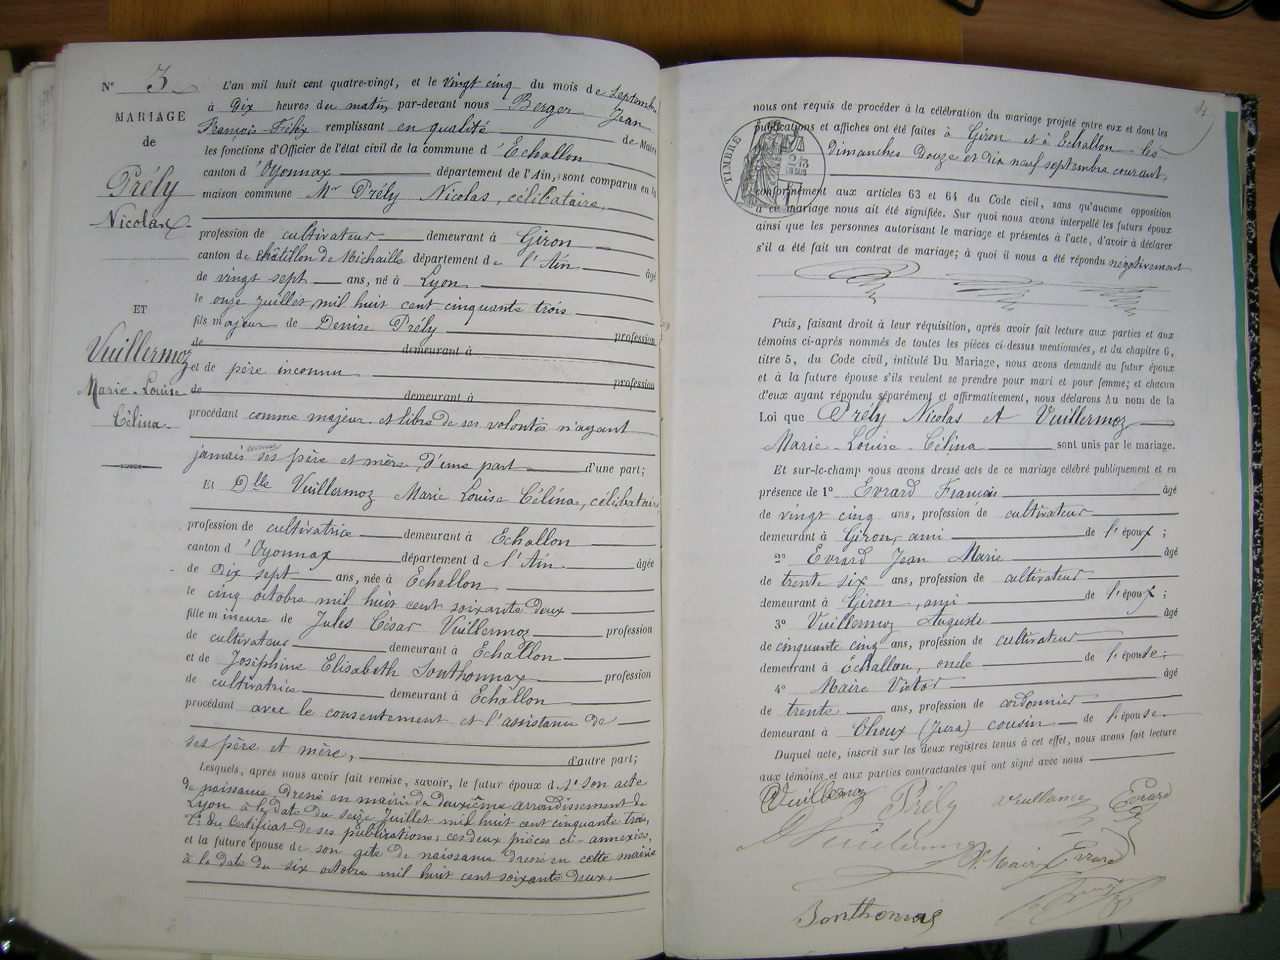 N° 3
MARIAGE
de
Prély
Nicolas
ET
Vuillermoz
Marie-Louise
Célina
L'an mil huit cent quatre-vingt, et le vingt cinq du mois de septembre
à Dix heures du matin, par-devant nous Berger Jean
François-Félix remplissant en qualité de Maire
les fonctions d'Officier de l'état civil de la commune d'Echallon
canton d'Oyonnax département de l'Ain, sont comparus en la
maison commune Mr Prély Nicolas, célibataire,
profession de cultivateur demeurant à Giron
canton de Châtillon de Michaille département de l'Ain âgé
de vingt sept ans, né à Lyon
le onze juillet mil huit cent cinquante trois
fils majeur de Denise Prély profession
de demeurant à
et de père inconnu profession
de demeurant à
procédant comme majeur et libre de ses volontés n'ayant
jamais connu ses père et mère, d'une part d'une part;
Et Dlle Vuillermoz Marie Louise Célina, célibataire
profession de cultivatrice demeurant à Echallon
canton d'Oyonnax département d l'Ain âgée
de Dix sept ans, née à Echallon
le cinq octobre mil huit cent soixante deux
fille mineure de Jules César Vuillermoz profession
de cultivateur demeurant à Echallon
et de Joséphine Elisabeth Sonthonnax profession
de cultivatrice demeurant à Echallon
procédant avec le consentement et l'assistance de
ses père et mère, d'autre part;
Lesquels, après nous avoir fait remise, savoir, le futur époux d 1° son acte
de naissance dressé en mairie du deuxième arrondissement de
Lyon à la date du seize juillet mil huit cent cinquante trois,
2° du certificat de ses publications; ces deux pièces ci-annexées,
et la future épouse de son acte de naissance dressé en cette mairie
à la date du six octobre mil huit cent soixante deux,
4
nous ont requis de procéder à la célébration du mariage projeté entre eux et dont les
publications et affiches ont été faites à Giron et à Echallon les
Dimanches Douze et dix neuf septembre courant,
TIMBRE
conformément aux articles 63 et 64 du Code civil, sans qu'aucune opposition
à ce mariage nous ait été signifiée. Sur quoi nous avons interpellé les futurs époux
ainsi que les personnes autorisant le mariage et présentes à l'acte, d'avoir à déclarer
s'il a été fait un contrat de mariage; à quoi il nous a été répondu négativement
Puis, faisant droit à leur réquisition, après avoir fait lecture aux parties et aux
témoins ci-après nommés de toutes les pièces ci-dessus mentionnées, et du chapitre 6,
titre 5, du Code civil, intitulé Du Mariage, nous avons demandé au futur époux
et à la future épouse s'ils veulent se prendre pour mari et pour femme; et chacun
d'eux ayant répondu séparément et affirmativement, nous déclarons Au nom de la
Loi que Prély Nicolas et Vuillermoz
Marie-Louise-Célina sont unis par le mariage.
Et sur-le-champ nous avons dressé acte de ce mariage célébré publiquement et en
présence de 1° Evrard François âgé
de vingt cinq ans, profession de cultivateur
demeurant à Giron, ami de l'époux;
2° Evrard Jean Marie âgé
de trente six ans, profession de cultivateur
demeurant à Giron, ami de l'époux;
3° Vuillermoz Auguste âgé
de cinquante cinq ans, profession de cultivateur
demeurant à Echallon, oncle de l'épouse;
4° Maire Victor âgé
de trente ans, profession de cordonnier
demeurant à Choux (Jura) cousin de l'épouse.
Duquel acte, inscrit sur les deux registres tenus à cet effet, nous avons fait lecture
aux témoins et aux parties contractantes qui ont signé avec nous
Vuillermoz Prély Evrard
Vuillermoz
V. Maire Evrard
Sonthonnax